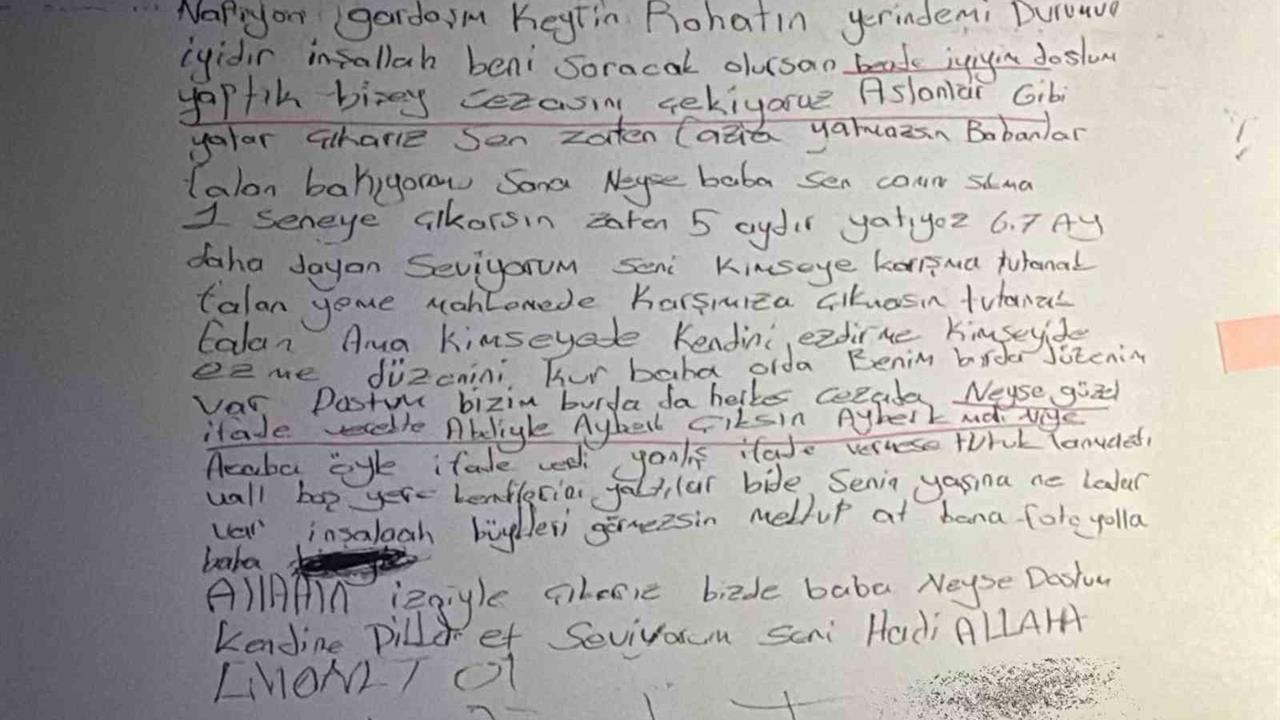 Napıyon gardaşım Keyfin Rahatın yerindemi Durumun
iyidir inşallah beni soracak olursan bende iyiyim dostum
yaptık bizey cezasını çekiyoruz Aslanlar Gibi
yatar çıkarız sen zaten fazla yatmazsın Babanlar
falan bakıyormu sana Neyse baba sen canını sıkma
1 seneye çıkarsın zaten 5 aydır yatıyoz 6.7 AY
daha dayan Seviyorum seni kimseye karışma tutanak
falan yeme mahkemede karşımıza çıkmasın tutanak
falan Ama kimseyede kendini ezdirme kimseyide
ezme düzenini kur baba orda Benim burda düzenim
var Dostum bizim burda da herkes cezada Neyse güzel
ifade Abliyle Ayberk Çıksın Ayberk niye
Acaba öyle ifade verdi yanlış ifade vermese tutuk
boş yere yaktılar bide Senin yaşına ne kadar
var inşalaah büyükleri görmezsin mektup at bana foto yolla
baba
AllAHIN izniyle çıkarız bizde baba Neyse Dostum
kendine Dikkat et Seviyorum seni Hadi ALLAHA
EMANET Ol